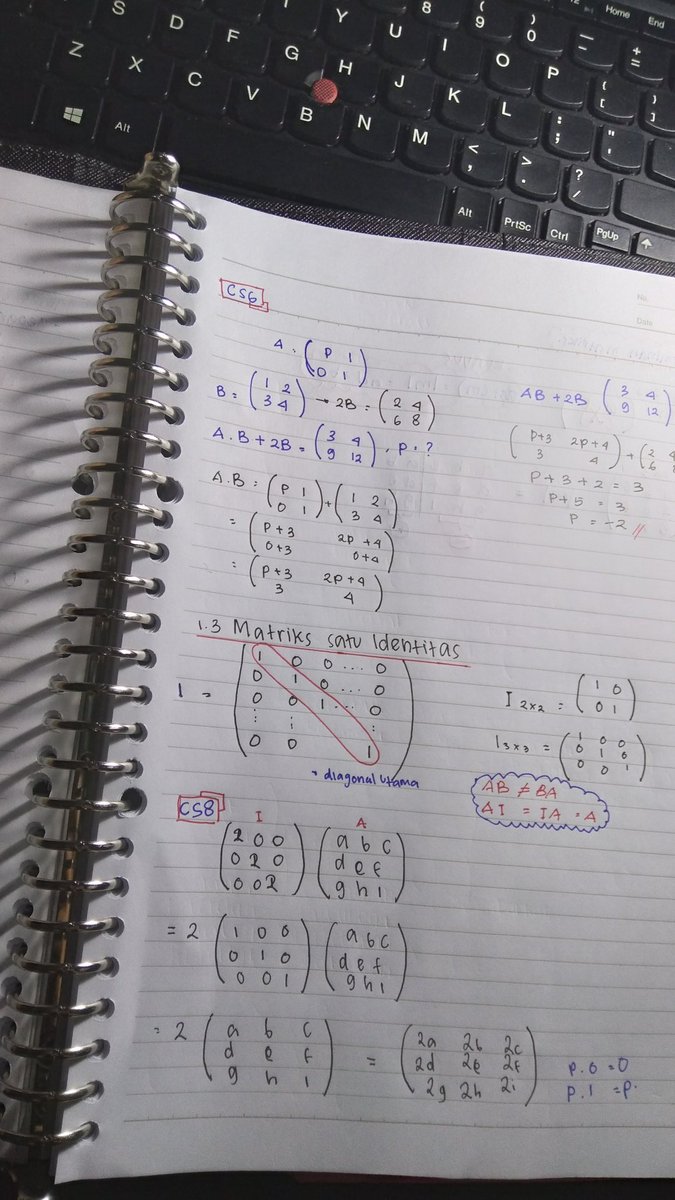 S D F G H J K L
Z X C V B N M
Y U I O P
8 ( 9 ) 0
Home End
Alt
Alt PrtSc Ctrl PgUp
No.
Date
CS6
A = ( P 1
0 1 )
B = ( 1 2
3 4 ) → 2B = ( 2 4
6 8 )
A.B + 2B = ( 3 4
9 12 ) , P = ?
A.B = ( P 1
0 1 ) + ( 1 2
3 4 )
= ( P+3 2P+4
0+3 0+4 )
= ( P+3 2P+4
3 4 )
AB + 2B ( 3 4
9 12 )
( P+3 2P+4
3 4 ) + ( 2 4
6 8
P + 3 + 2 = 3
P+5 = 3
P = -2 //
1.3 Matriks satu Identitas
I = ( 1 0 0 ... 0
0 1 0 ... 0
0 0 1 ... 0
⋮ ⋮ ⋮
0 0 1 )
= diagonal utama
I 2x2 = ( 1 0
0 1 )
I 3x3 = ( 1 0 0
0 1 0
0 0 1 )
AB ≠ BA
AI = IA = A
CS8
I A
( 2 0 0
0 2 0
0 0 2 ) ( a b c
d e f
g h i )
= 2 ( 1 0 0
0 1 0
0 0 1 ) ( a b c
d e f
g h i )
= 2 ( a b c
d e f
g h i ) = ( 2a 2b 2c
2d 2e 2f
2g 2h 2i )
P.0 = 0
P.1 = P.